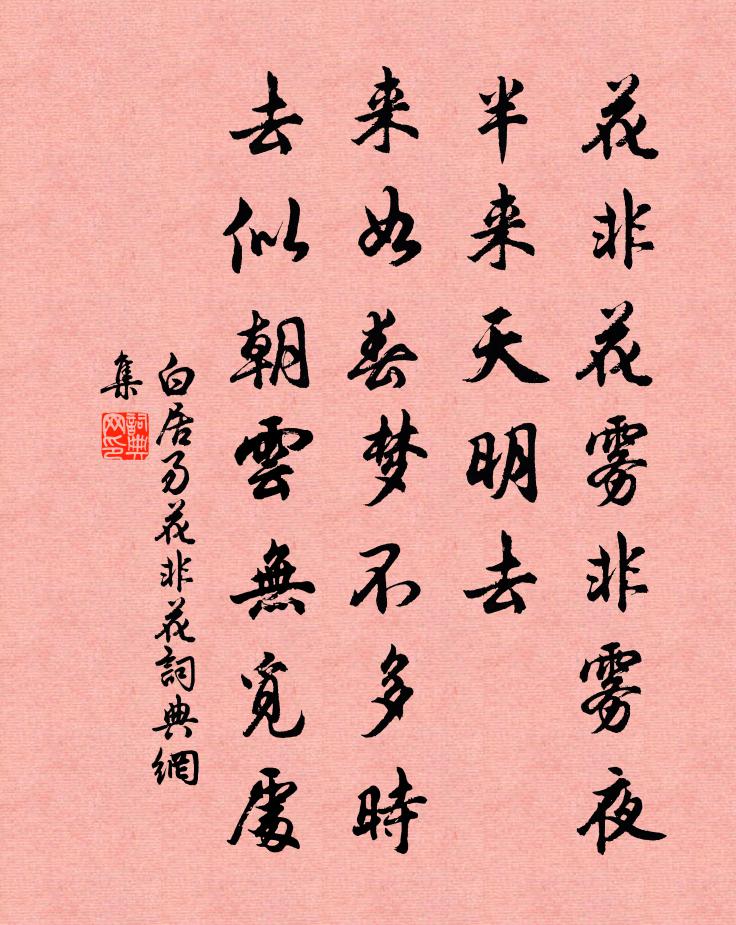 花非花雾非雾夜
半来天明去
来如春梦不多時
去似朝雲無覓處
白居易花非花詞典網
集
詞典
网印